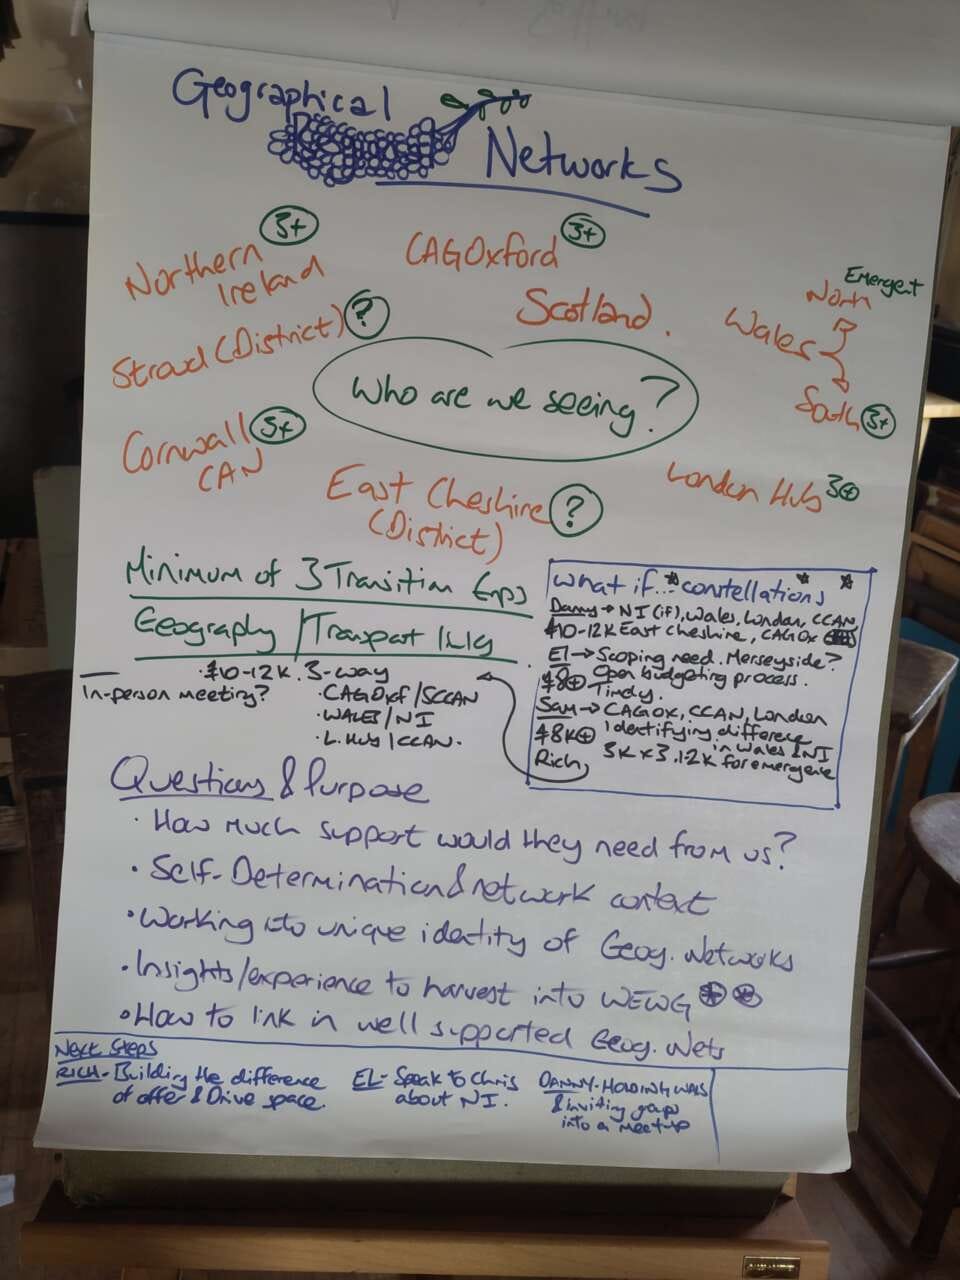 Geographical
Networks
3+
Northern
Ireland
CAGOxford
3+
Scotland.
Emergent
North
Wales
South 3+
Stroud (District) ?
Who are we seeing?
Cornwall 3+
CAN
East Cheshire ?
(District)
London Hub 3+
Minimum of 3 Transition Grps
Geography / Transport link
£10-12K. 3-way
In-person meeting?
· CAGOxf / SCCAN
· WALES / NI
· L. Hub / CCAN.
What if... *constellations * *
Danny → NI (if), Wales, London, CCAN,
£10-12K East Cheshire, CAGOx
El → Scoping need. Merseyside?
Open budgeting process.
£8+ Tindy.
Sam → CAGOX, CCAN, London
£8K+ Identifying difference
in Wales & NI
3K x 3, 12K for emergence
Rich
Questions & Purpose
· How much support would they need from us?
· Self-Determination & network context
· Working into unique identity of Geog. Networks
· Insights/experience to harvest into WEWG
· How to link in well supported Geog. Nets
Next Steps
RICH - Building the difference
of offer & Drive space.
EL - Speak to Chris
about NI.
DANNY - HOLDING WALES
& inviting groups
into a meet-up